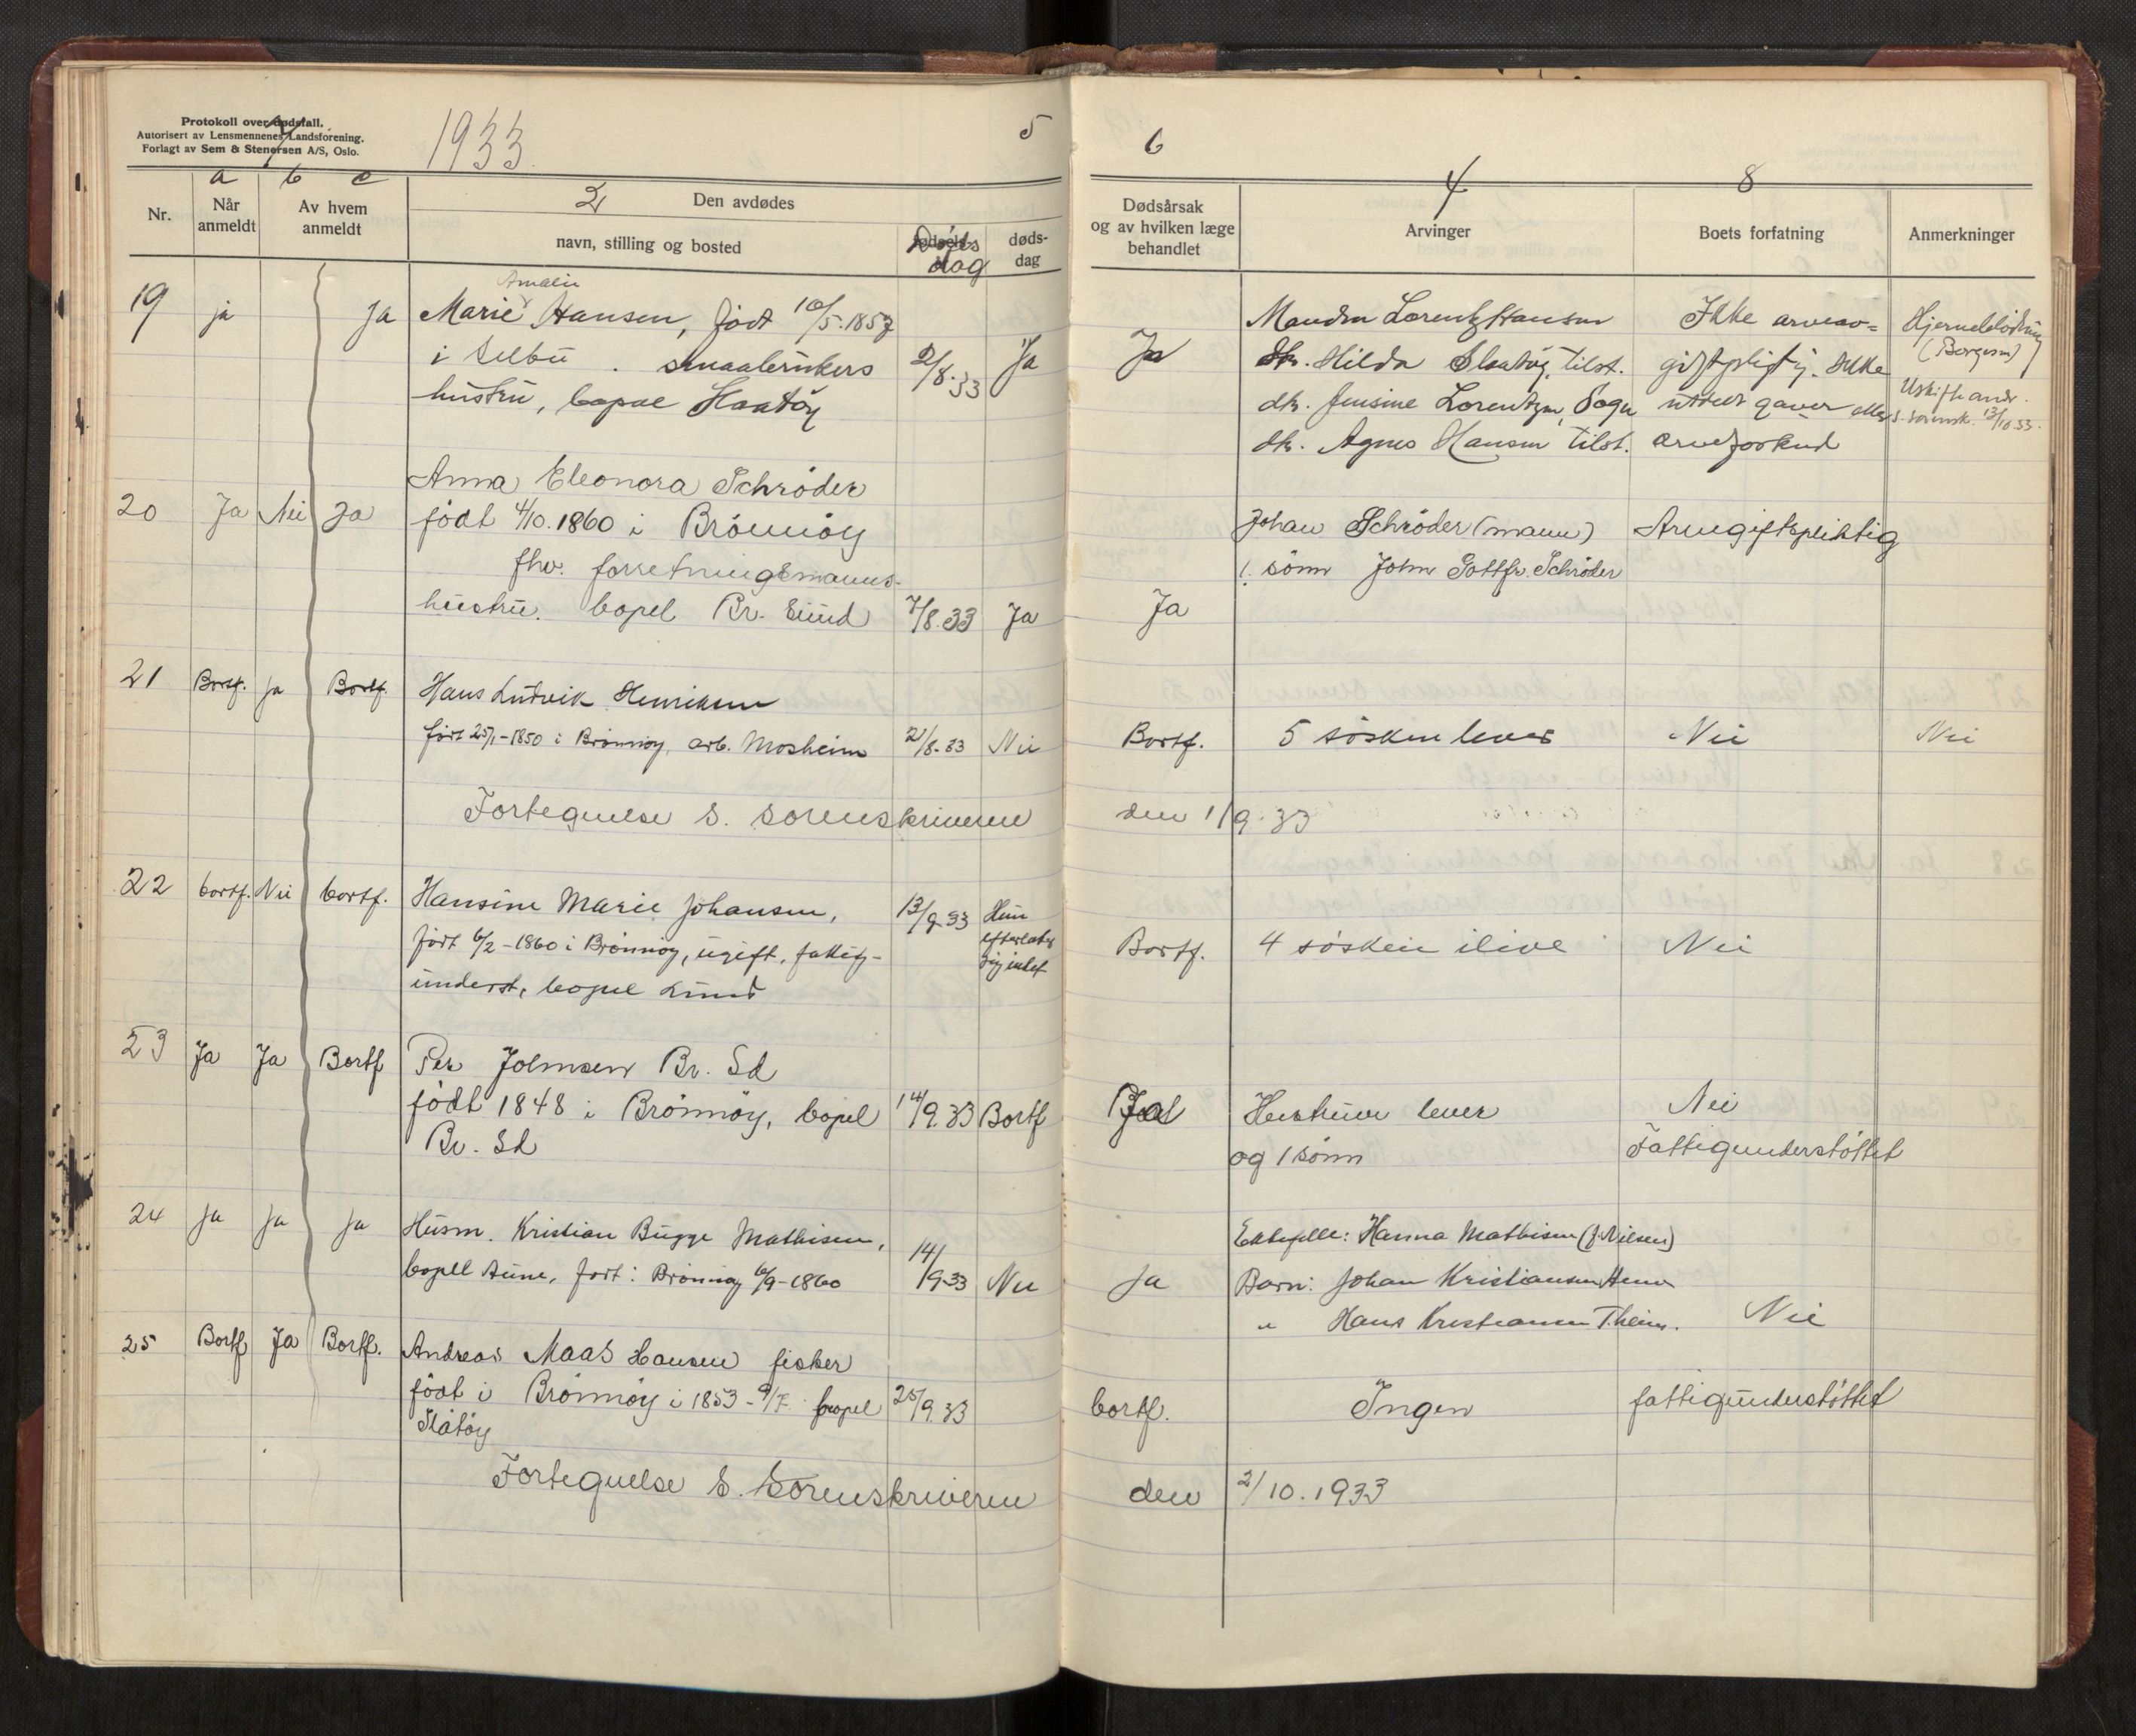 Protokoll over dødsfall.
Autorisert av Lensmennenes Landsforening.
Forlagt av Sem & Stenersen A/S, Oslo.
1933.
5
6
a b c
2
4
8
Nr.
Når anmeldt
Av hvem anmeldt
Den avdødes
navn, stilling og bosted
Døds dag
døds-dag
Dødsårsak og av hvilken læge behandlet
Arvinger
Boets forfatning
Anmerkninger
19 ja Ja
Amalie
Marie Hansen, født 10/5.1857
i Selbu. smaabrukers
hustru, bopæl
2/8.33 Ja
Ja
Manden Lorentz Hansen
dtr. Hilda tilst.
dtr. Jensine Lorentzen,
dtr. Agnes Hansen tilst.
Ikke arveav=
giftpligtig. Ikke
gaver eller
arveforskud
(Borgen)
13/10.33.
20 Ja Nei Ja
Anna Eleonora Schrøder
født 4/10.1860 i Brønnøy
fhv. forretningsmanns-
hustru. bopel Br.sund
7/8.33 Ja
Ja
Johan Schrøder (mann)
1 sønn John Gottfr. Schrøder
Arvegiftspliktig
21 Bortf. ja Bortf.
Hans Ludvik Henriksen
født 25/1-1850 i Brønnøy, arb. Mosheim
21/8-33 Nei
Bortf.
5 søsken lever
Nei
Nei
Fortegnelse s. sorenskriveren den 1/9.33
22 bortf. Nei bortf.
Hansine Marie Johansen,
født 6/2-1860 i Brønnøy, ugift, fattig-
underst, bopel Lund
13/9-33
Hun
efterlater
sig intet
Bortf.
4 søsken ilive
Nei
23 Ja Ja Bortf
Per Johnsen Br. Sd
født 1848 i Brønnøy, bopel
Br. Sd
14/9.33 Bortf
Ja
Hustruen lever
og 1 sønn
Nei
Fattigunderstøttet
24 Ja Ja Ja
Husm. Kristian Bugge Mathisen,
bopell Aune, født i Brønnøy 6/9-1860
14/9-33 Nei
Ja
Ektefelle: Hanna Mathisen (f. Nilsen)
Barn: Johan Kristiansen
" Hans Kristiansen
Nei
25 Bortf Ja Bortf.
Andreas Maas Hansen fisker
født i Brønnøy i 1853 - 9/7. bopel
25/9.33
bortf.
Ingen
fattigunderstøttet
Fortegnelse s. Sorenskriveren den 2/10.1933